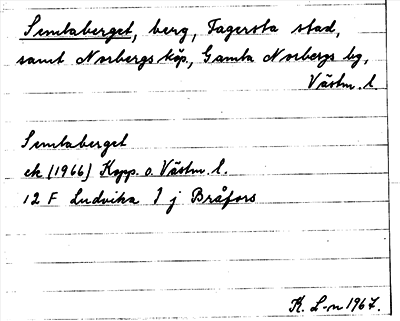 Semlaberget, berg, Fagersta stad,
samt Norbergs köp., Gamla Norbergs bg,
Västm. l
Semlaberget
ek (1966) Kopp. o. Västm. l.
12 F Ludvika I j Bråfors
K. L-n 1967.